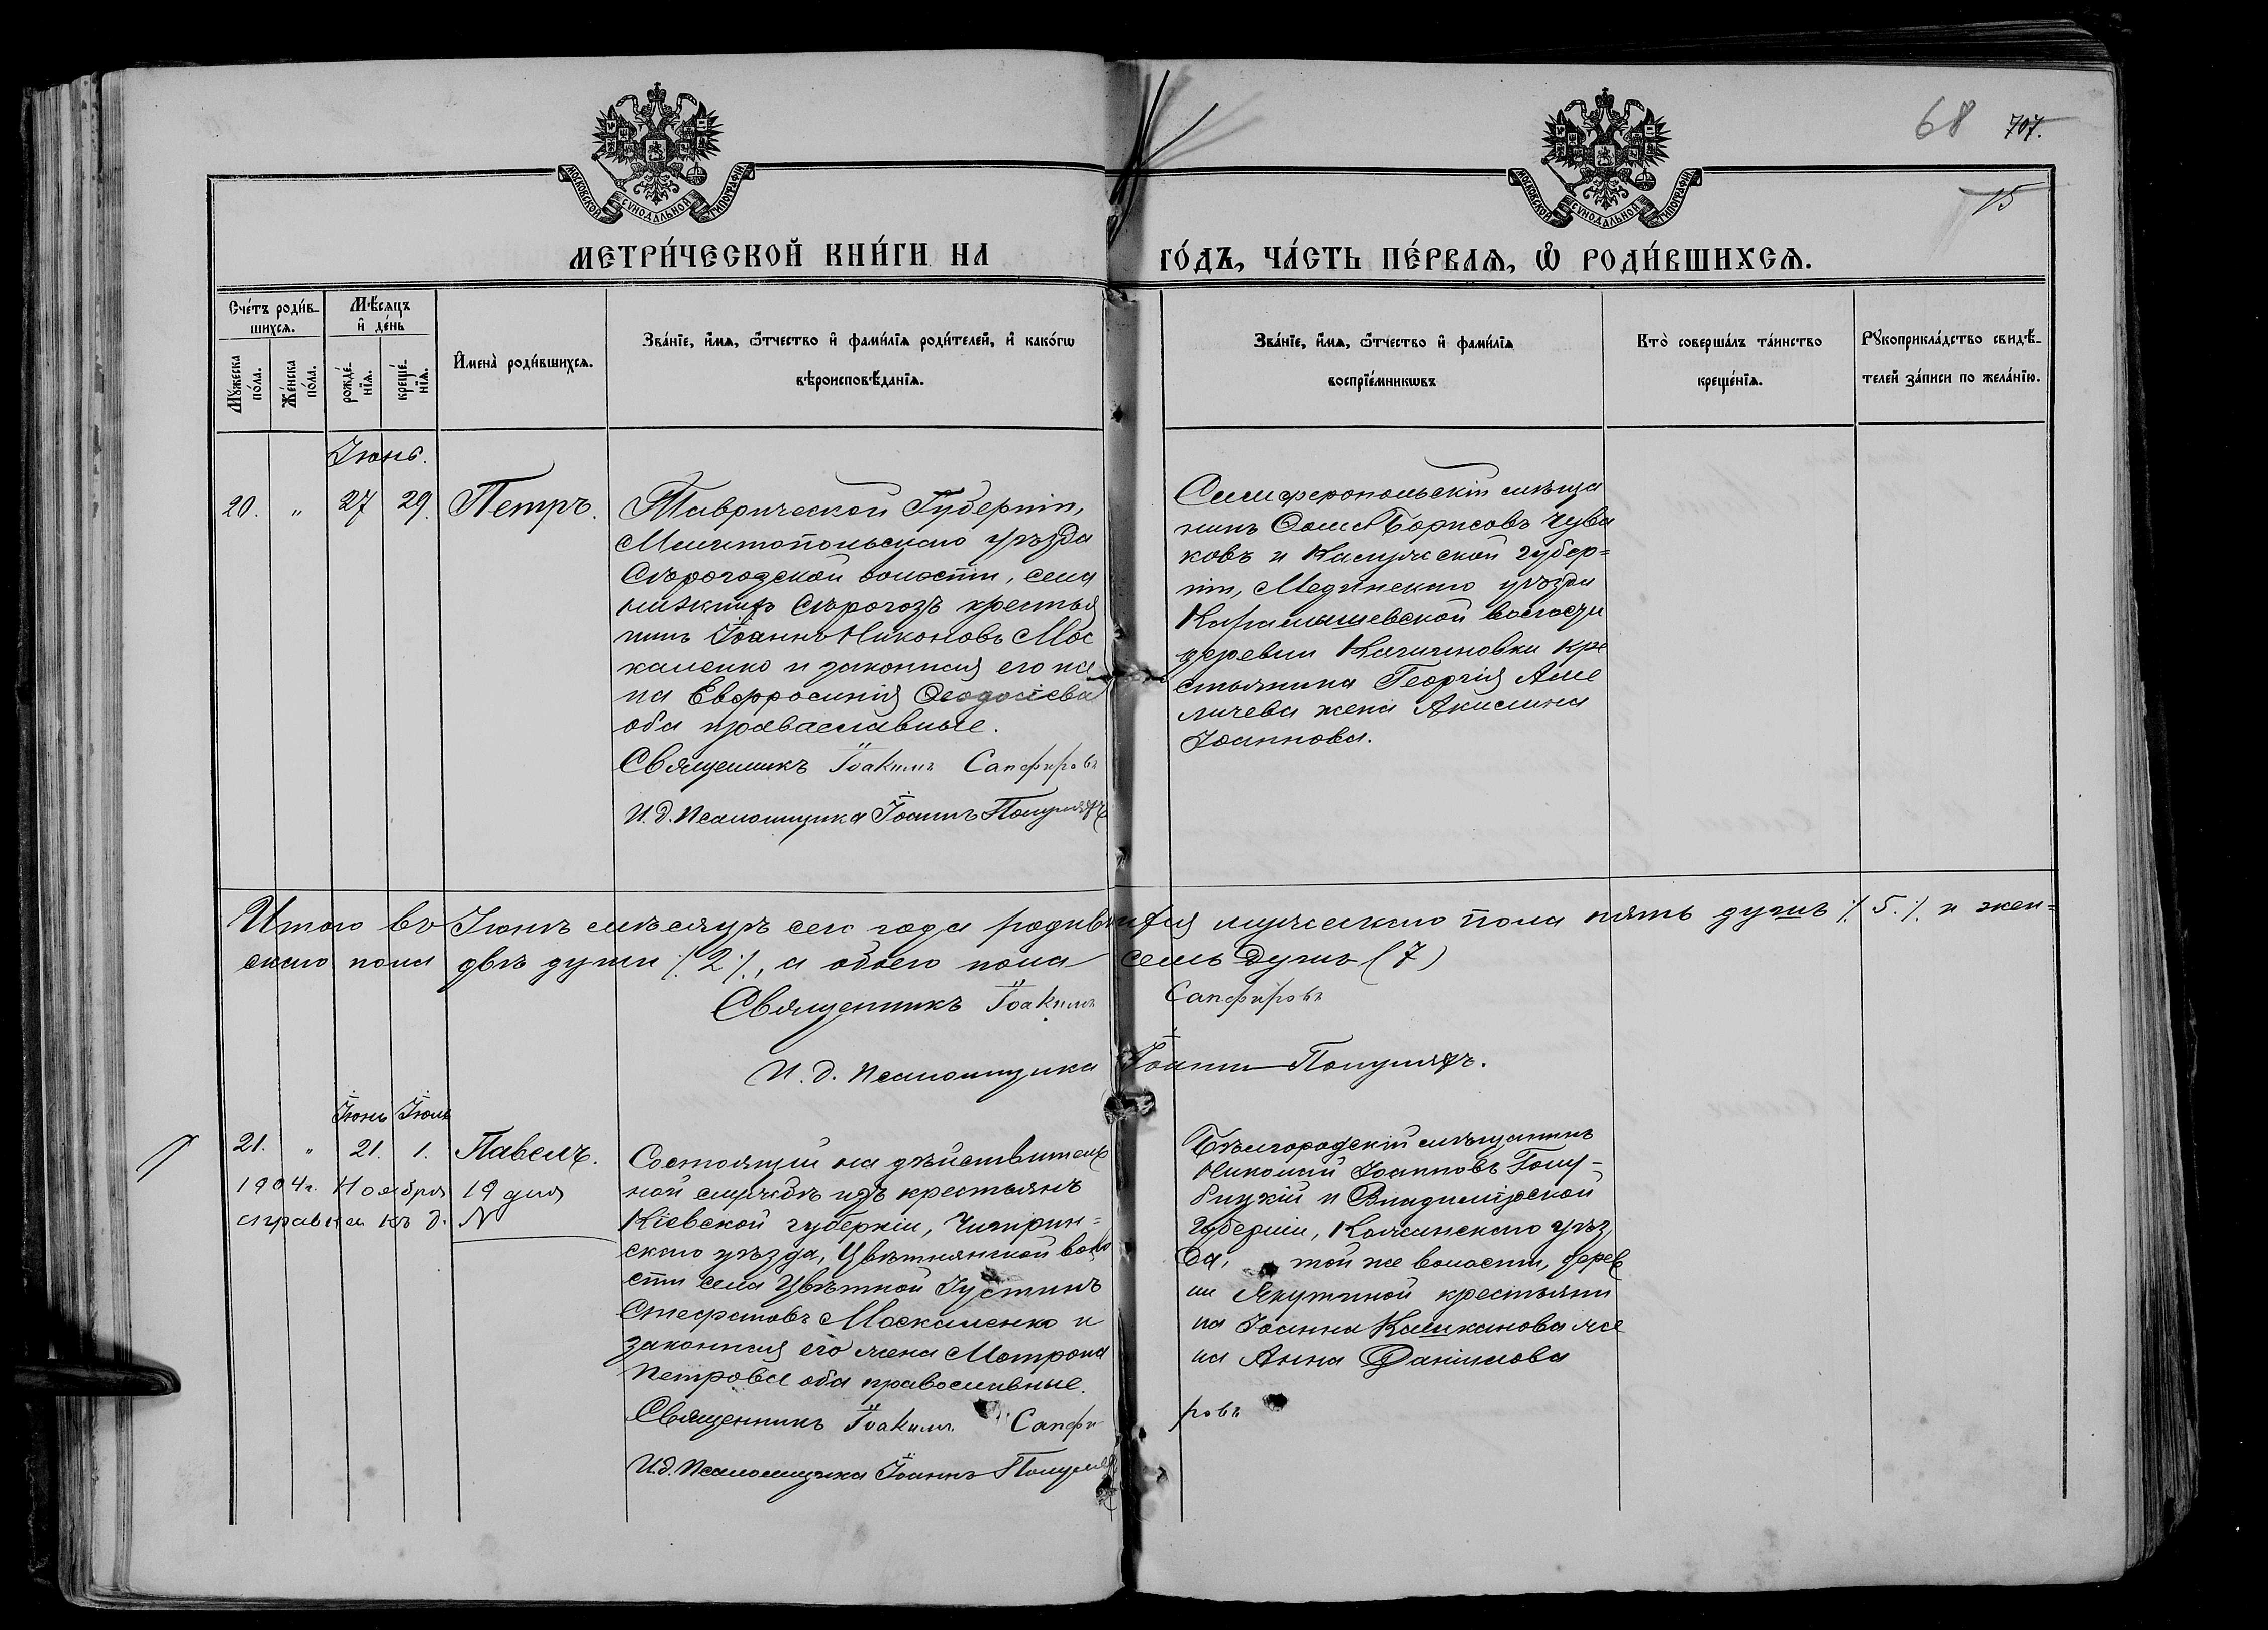 МОСКОВСКОЙ СѴНОДАЛЬНОЙ ТИПОГРАФІИ
МОСКОВСКОЙ СѴНОДАЛЬНОЙ ТИПОГРАФІИ
68 707.
15
МЕТРИ́ЧЕСКОЙ КНИ́ГИ НА ГО́ДЪ, ЧА́СТЬ ПЕ́РВАѦ, Ѡ҆ РОДИ́ВШИХСѦ.
Сче́тъ роди́в-
шихсѧ.
Мꙋ́жеска по́ла.
Же́нска по́ла.
Мѣ́сѧцъ и҆ де́нь
рожде́нїѧ.
креще́нїѧ.
И҆мена̀ роди́вшихсѧ.
Зва́нїе, и҆́мѧ, ѻ҆́тчество и҆ фами́лїѧ роди́телей, и҆ како́гѡ
вѣроисповѣ́данїѧ.
Зва́нїе, и҆́мѧ, ѻ҆́тчество и҆ фами́лїѧ
воспрїе́мникѡвъ
Кто̀ соверша́лъ та́инство
креще́нїѧ.
Рꙋкоприкла́дство свидѣ́-
телей за́писи по жела́нїю.
Іюнь.
20. „ 27 29. Петръ.
Таврической Губерніи,
Мелитопольскаго уѣзда
Сѣрогозской волости, села
Нижнихъ Сѣрогозъ крестья
нинъ Іоаннъ Никоновъ Мос
каленко и законная его же
на Евфросинія Ѳеодосіева
оба праваславные.
Священникъ Іоакимъ Сапфировъ
И. д. Псаломщика Іоаннъ
Симферопольскій мѣща
нинъ Ѳома Борисовъ Чува
ковъ и Калужской губер=
ніи, Медынскаго уѣзда
Карамышевской волости
деревни кре
стьянина Георгія Аме
личева жена Акилина
Іоаннова.
Итого въ Іюнѣ мѣсяцѣ сего года родившихся мужескаго пола пять душъ ./. 5 ./. и жен=
скаго пола двѣ души ./. 2 ./., а обоего пола семь душъ (7)
Священникъ Іоакимъ Сапфировъ
И. д. Псаломщика Іоаннъ
Іюнь Іюля
21. „ 21. 1. Павелъ.
1904 г. Ноября 19 дня
справка къ д. N
Состоящій на дѣйствитель
ной службѣ изъ крестьянъ
Кіевской губерніи, Чигирин=
скаго уѣзда, Цвѣтнянской воло
сти села Цвѣтной Іустинъ
Стефановъ Москаленко и
законная его жена Матрона
Петрова оба православные.
Священникъ Іоакимъ Сапфи
ровъ
И. д. Псаломщика Іоаннъ
Бѣлгородскій мѣщанинъ
Николай Іоанновъ Голу-
бицкій и Владимірской
Губерніи, уѣз
да, той же волости, дерев
ни Якутиной крестьяни
на Іоанна Каликанова же
на Анна Даніилова